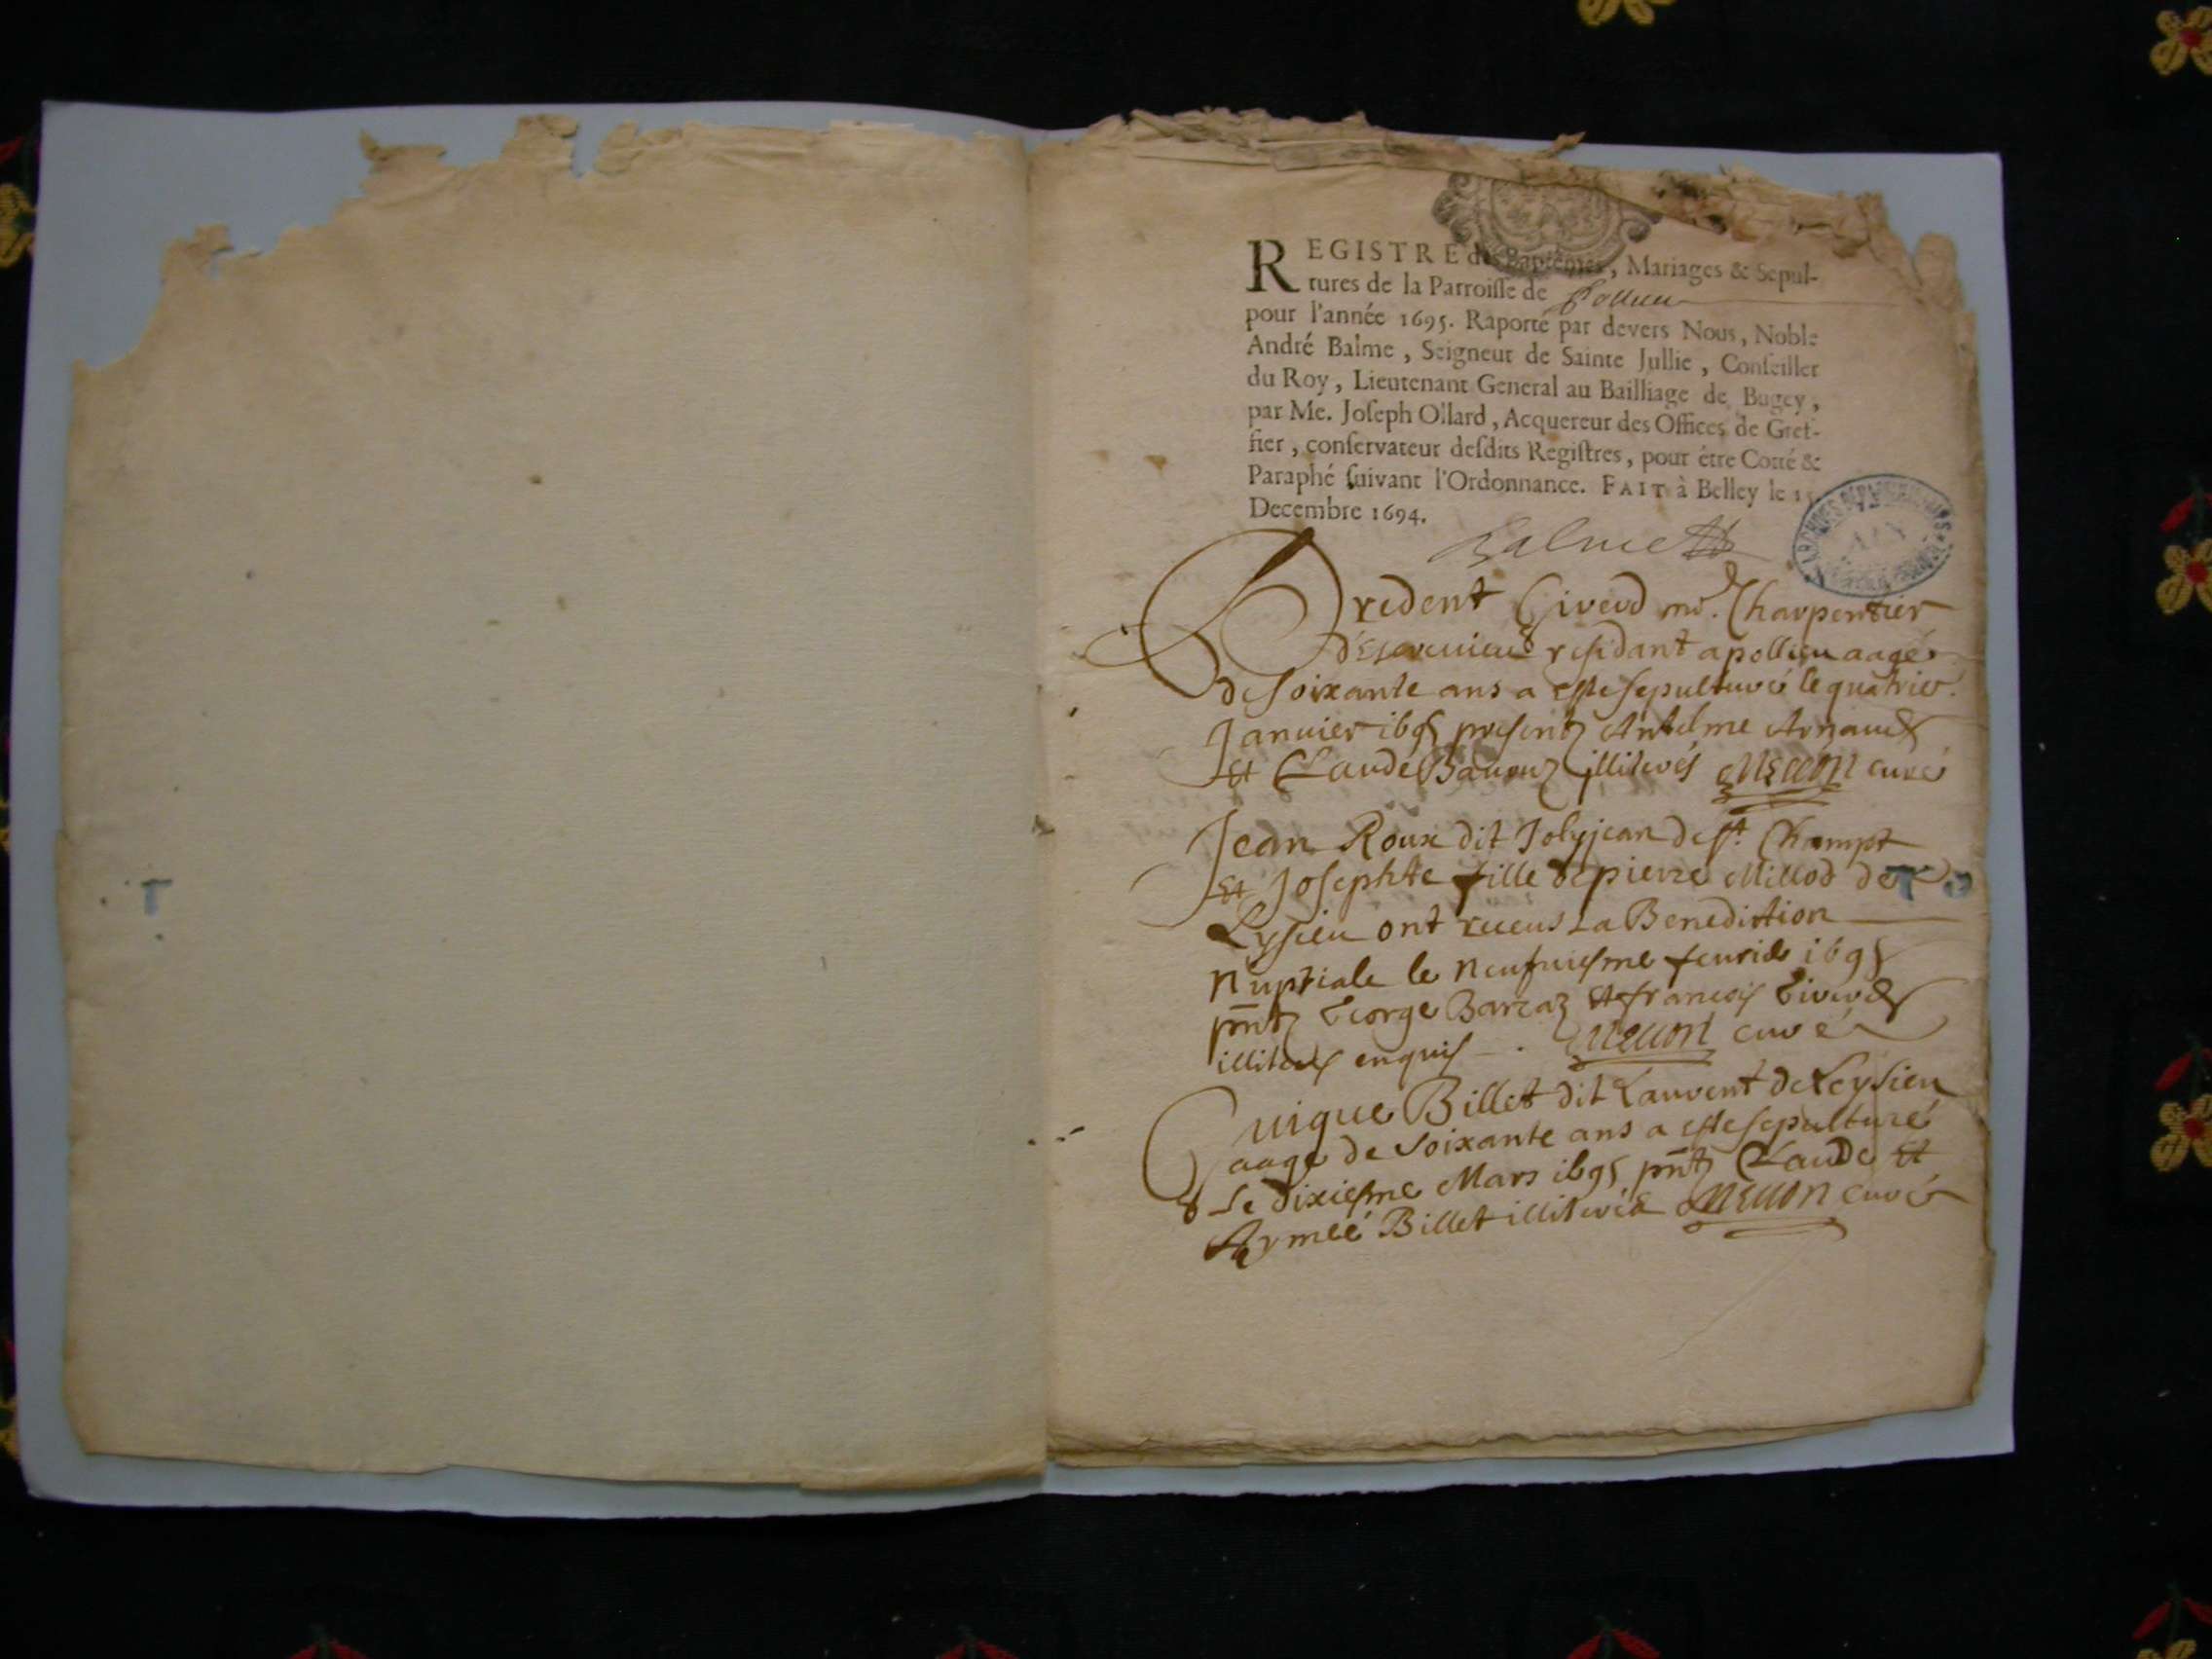 REGISTRE des Baptémes, Mariages & Sepul-
tures de la Parroisse de Pollieu
pour l'année 1695. Raporté par devers Nous, Noble
André Balme, Seigneur de Sainte Jullie, Conseiller
du Roy, Lieutenant General au Bailliage de Bugey,
par Me. Joseph Ollard, Acquereur des Offices de Gref-
fier, conservateur desdits Registres, pour être Cotté &
Paraphé suivant l'Ordonnance. FAIT à Belley le 15
Decembre 1694.
Balme
ARCHIVES DEPARTEMENTALES
AIN
Predent Giverd me. Charpentier
residant a pollieu aagé
de soixante ans a este sepulturé le quatrie.
Janvier 1695 presents Antelme Arnaud
et Claude illiterés curé
Jean Roux dit Jolyjean de st. Champt
et Josephte fille de pierre Millod de
Lysieu ont receus La Benediction
Nuptiale le neufviesme fevrier 1695
pnts George Barcaz et francois Giverd
illiterés enquis. curé
Guigue Billet dit Laurent de Leysieu
aagé de soixante ans a este sepulturé
Le dixiesme Mars 1695 pnts Claude et
Aymée Billet illiterés curé
T